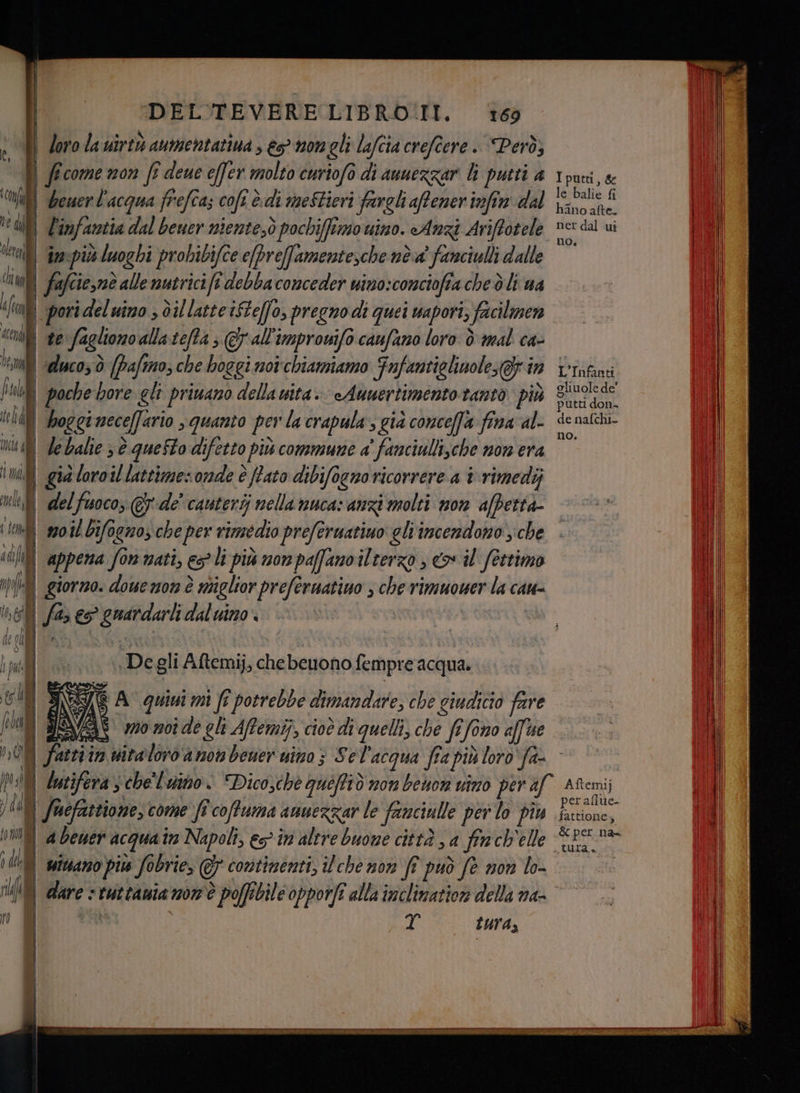 DEL TEVERE LIBRO II. 169
loro la uirtù aumentatiua, & non gli lascia crescere. Però,
sicome non si deue esser molto curioso di auuezzar li putti a
beuer l'acqua fresca; cosi è di mestieri fargli astener infin dal
l'infantia dal beuer niente, ò pochissimo uino. Anzi Aristotele
in più luoghi prohibisce espressamente, che nè a' fanciulli dalle
fascie, nè alle nutrici si debba conceder uino: conciosia che ò li ua
pori del uino, ò il latte istesso, pregno di quei uapori, facilmen
te sagliono alla testa, & all'improuiso causano loro ò mal ca-
duco, ò spasimo, che hoggi noi chiamiamo Infantigliuole, & in
poche hore gli priuano della uita. Auuertimento tanto più
hoggi necessario, quanto per la crapula, già concessa fina al-
le balie, è questo difetto più commune a' fanciulli, che non era
già loro il lattime: onde è stato di bisogno ricorrere a i rimedij
del fuoco, & de' cauterij nella nuca: anzi molti non aspetta-
no il bisogno, che per rimedio preseruatiuo gli incendono, che
appena son nati, & li più non passano il terzo, & il settimo
giorno. doue non è miglior preseruatiuo, che rimuouer la cau-
sa, & guardarli dal uino.
I putti, &
le balie si
hāno aste-
ner dal ui
no.
L'Infanti
gliuole de'
putti don-
de naschi-
no.
De gli Astemij, che beuono sempre acqua.
MA quiui mi si potrebbe dimandare, che giudicio fare
mo noi de gli Astemij, cioè di quelli, che si sono assue
fatti in uita loro a non beuer uino; Se l'acqua sia più loro sa-
lutifera, che'l uino. Dico, che questiò non beuon uino per as
suefattione, come si costuma auuezzar le fanciulle per lo piu
a beuer acqua in Napoli, & in altre buone città, a fin ch'elle
uiuano più sobrie, & continenti, il che non si può se non lo-
dare: tuttauia non è possibile opporsi alla inclination della na-
Astemij
per assue-
fattione,
& per na-
tura.
Y tura,